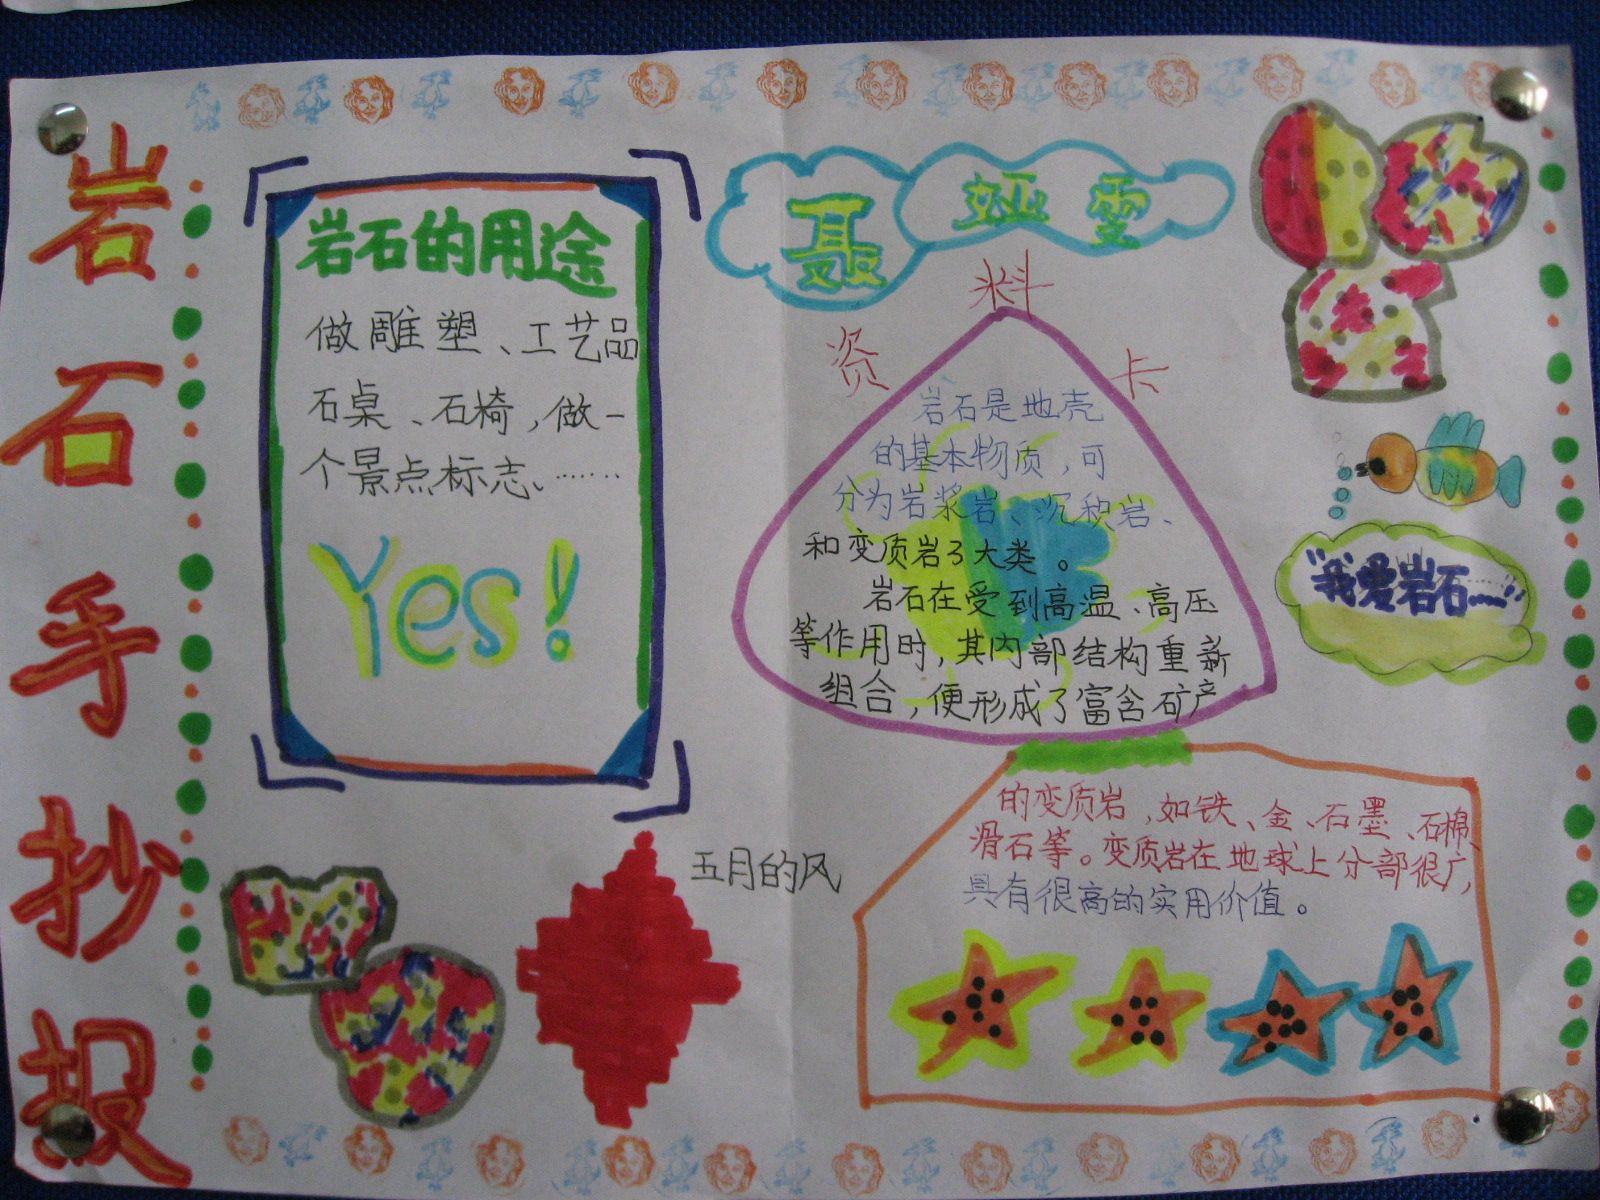 岩石手抄报
岩石的用途
做雕塑、工艺品
石桌、石椅,做一
个景点标志、……
Yes!
五月的风
聂娅雯
资料卡
岩石是地壳
的基本物质,可
分为岩浆岩、沉积岩、
和变质岩3大类。
岩石在受到高温、高压
等作用时,其内部结构重新
组合,便形成了富含矿产
的变质岩,如铁、金、石墨、石棉、
滑石等。变质岩在地球上分部很广,
具有很高的实用价值。
“我爱岩石……”